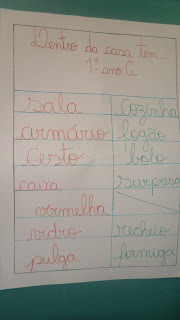 Dentro da casa tem...
1º ano C
sala cozinha
armário fogão
cesto bolo
caixa surpresa
vermelha
vidro recheio
pulga formiga